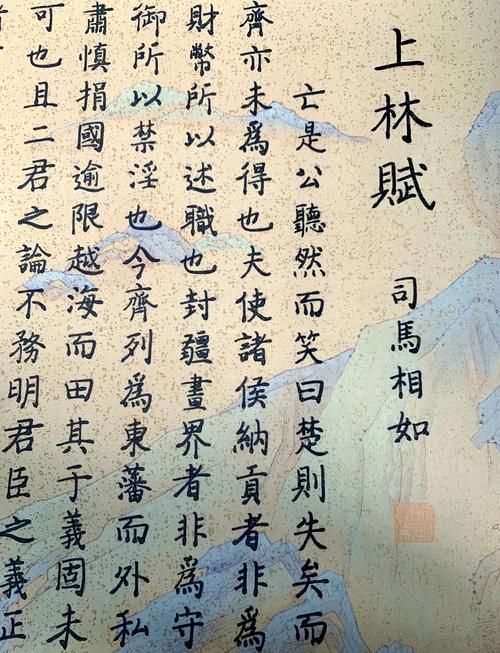 上林賦
司馬相如
亡是公聽然而笑曰楚則失矣而
齊亦未爲得也夫使諸侯納貢者非爲
財幣所以述職也封疆畫界者非爲守
御所以禁淫也今齊列爲東藩而外私
肅慎捐國逾限越海而田其于義固未
可也且二君之論不務明君臣之義正